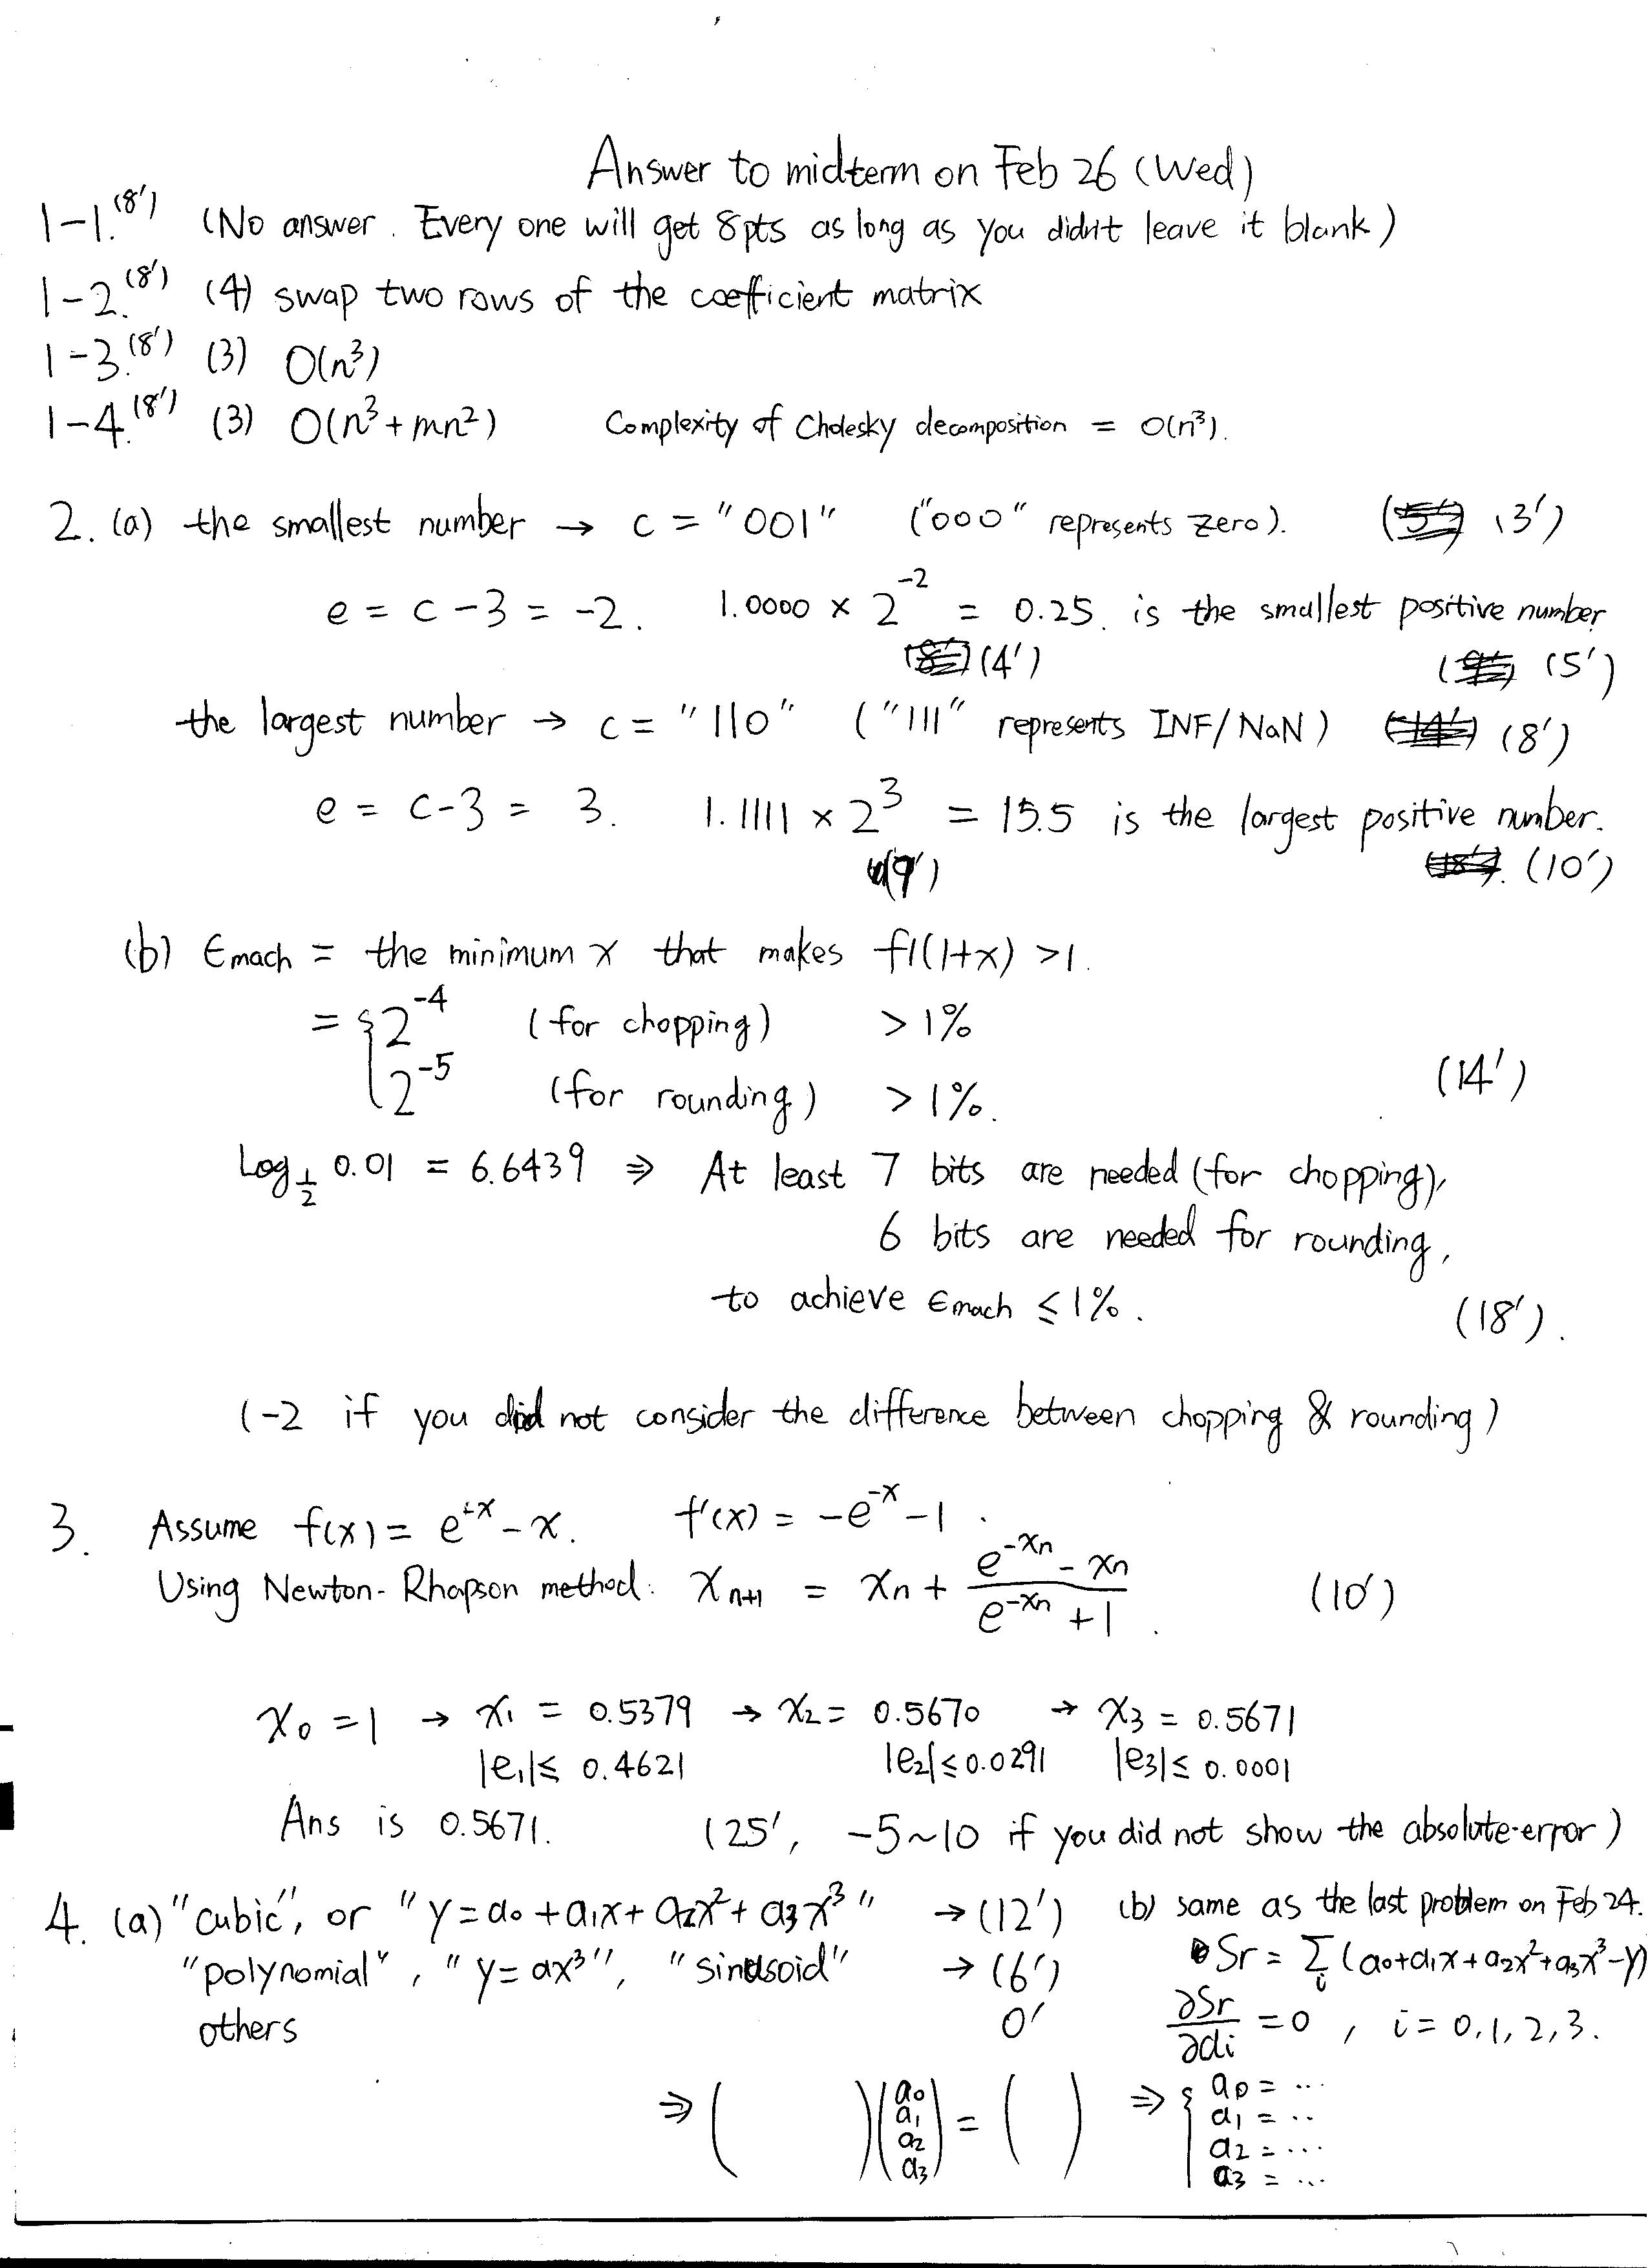 Answer to midterm on Feb 26 (Wed)
1-1. (8') (No answer. Every one will get 8pts as long as you didn't leave it blank)
1-2. (8') (4) swap two rows of the coefficient matrix
1-3. (8') (3) O(n³)
1-4. (8') (3) O(n³+mn²) Complexity of Cholesky decomposition = O(n³).
2. (a) the smallest number → c = "001" ("000" represents zero). (3')
e = c-3 = -2. 1.0000 × 2⁻² = 0.25. is the smallest positive number
(4') (5')
the largest number → c = "110" ("111" represents INF/NaN) (8')
e = c-3 = 3. 1.1111 × 2³ = 15.5 is the largest positive number.
(9') (10')
(b) Emach = the minimum x that makes fl(1+x) >1.
= { 2⁻⁴ (for chopping) > 1%
2⁻⁵ (for rounding) > 1%. (14')
Log½ 0.01 = 6.6439 ⇒ At least 7 bits are needed (for chopping),
6 bits are needed for rounding,
to achieve Emach ≤ 1%. (18').
(-2 if you did not consider the difference between chopping & rounding)
3. Assume f(x) = e⁻ˣ - x. f'(x) = -e⁻ˣ - 1.
Using Newton-Rhapson method: xn+1 = xn + (e^-xn - xn)/(e^-xn + 1). (10')
x₀ = 1 → x₁ = 0.5379 → x₂ = 0.5670 → x₃ = 0.5671
|e₁| ≤ 0.4621 |e₂| ≤ 0.0291 |e₃| ≤ 0.0001
Ans is 0.5671. (25', -5~10 if you did not show the absolute error)
4. (a) "cubic", or "y = a₀ + a₁x + a₂x² + a₃x³" → (12')
"polynomial", "y = ax³", "sinusoid" → (6')
others 0'
(b) same as the last problem on Feb 24.
Sr = Σi (a₀+a₁x+a₂x²+a₃x³-y)
∂Sr/∂ai = 0, i = 0,1,2,3.
⇒ ( ) (a₀ a₁ a₂ a₃) = ( ) ⇒ { a₀ = ...
a₁ = ..
a₂ = ...
a₃ = ...